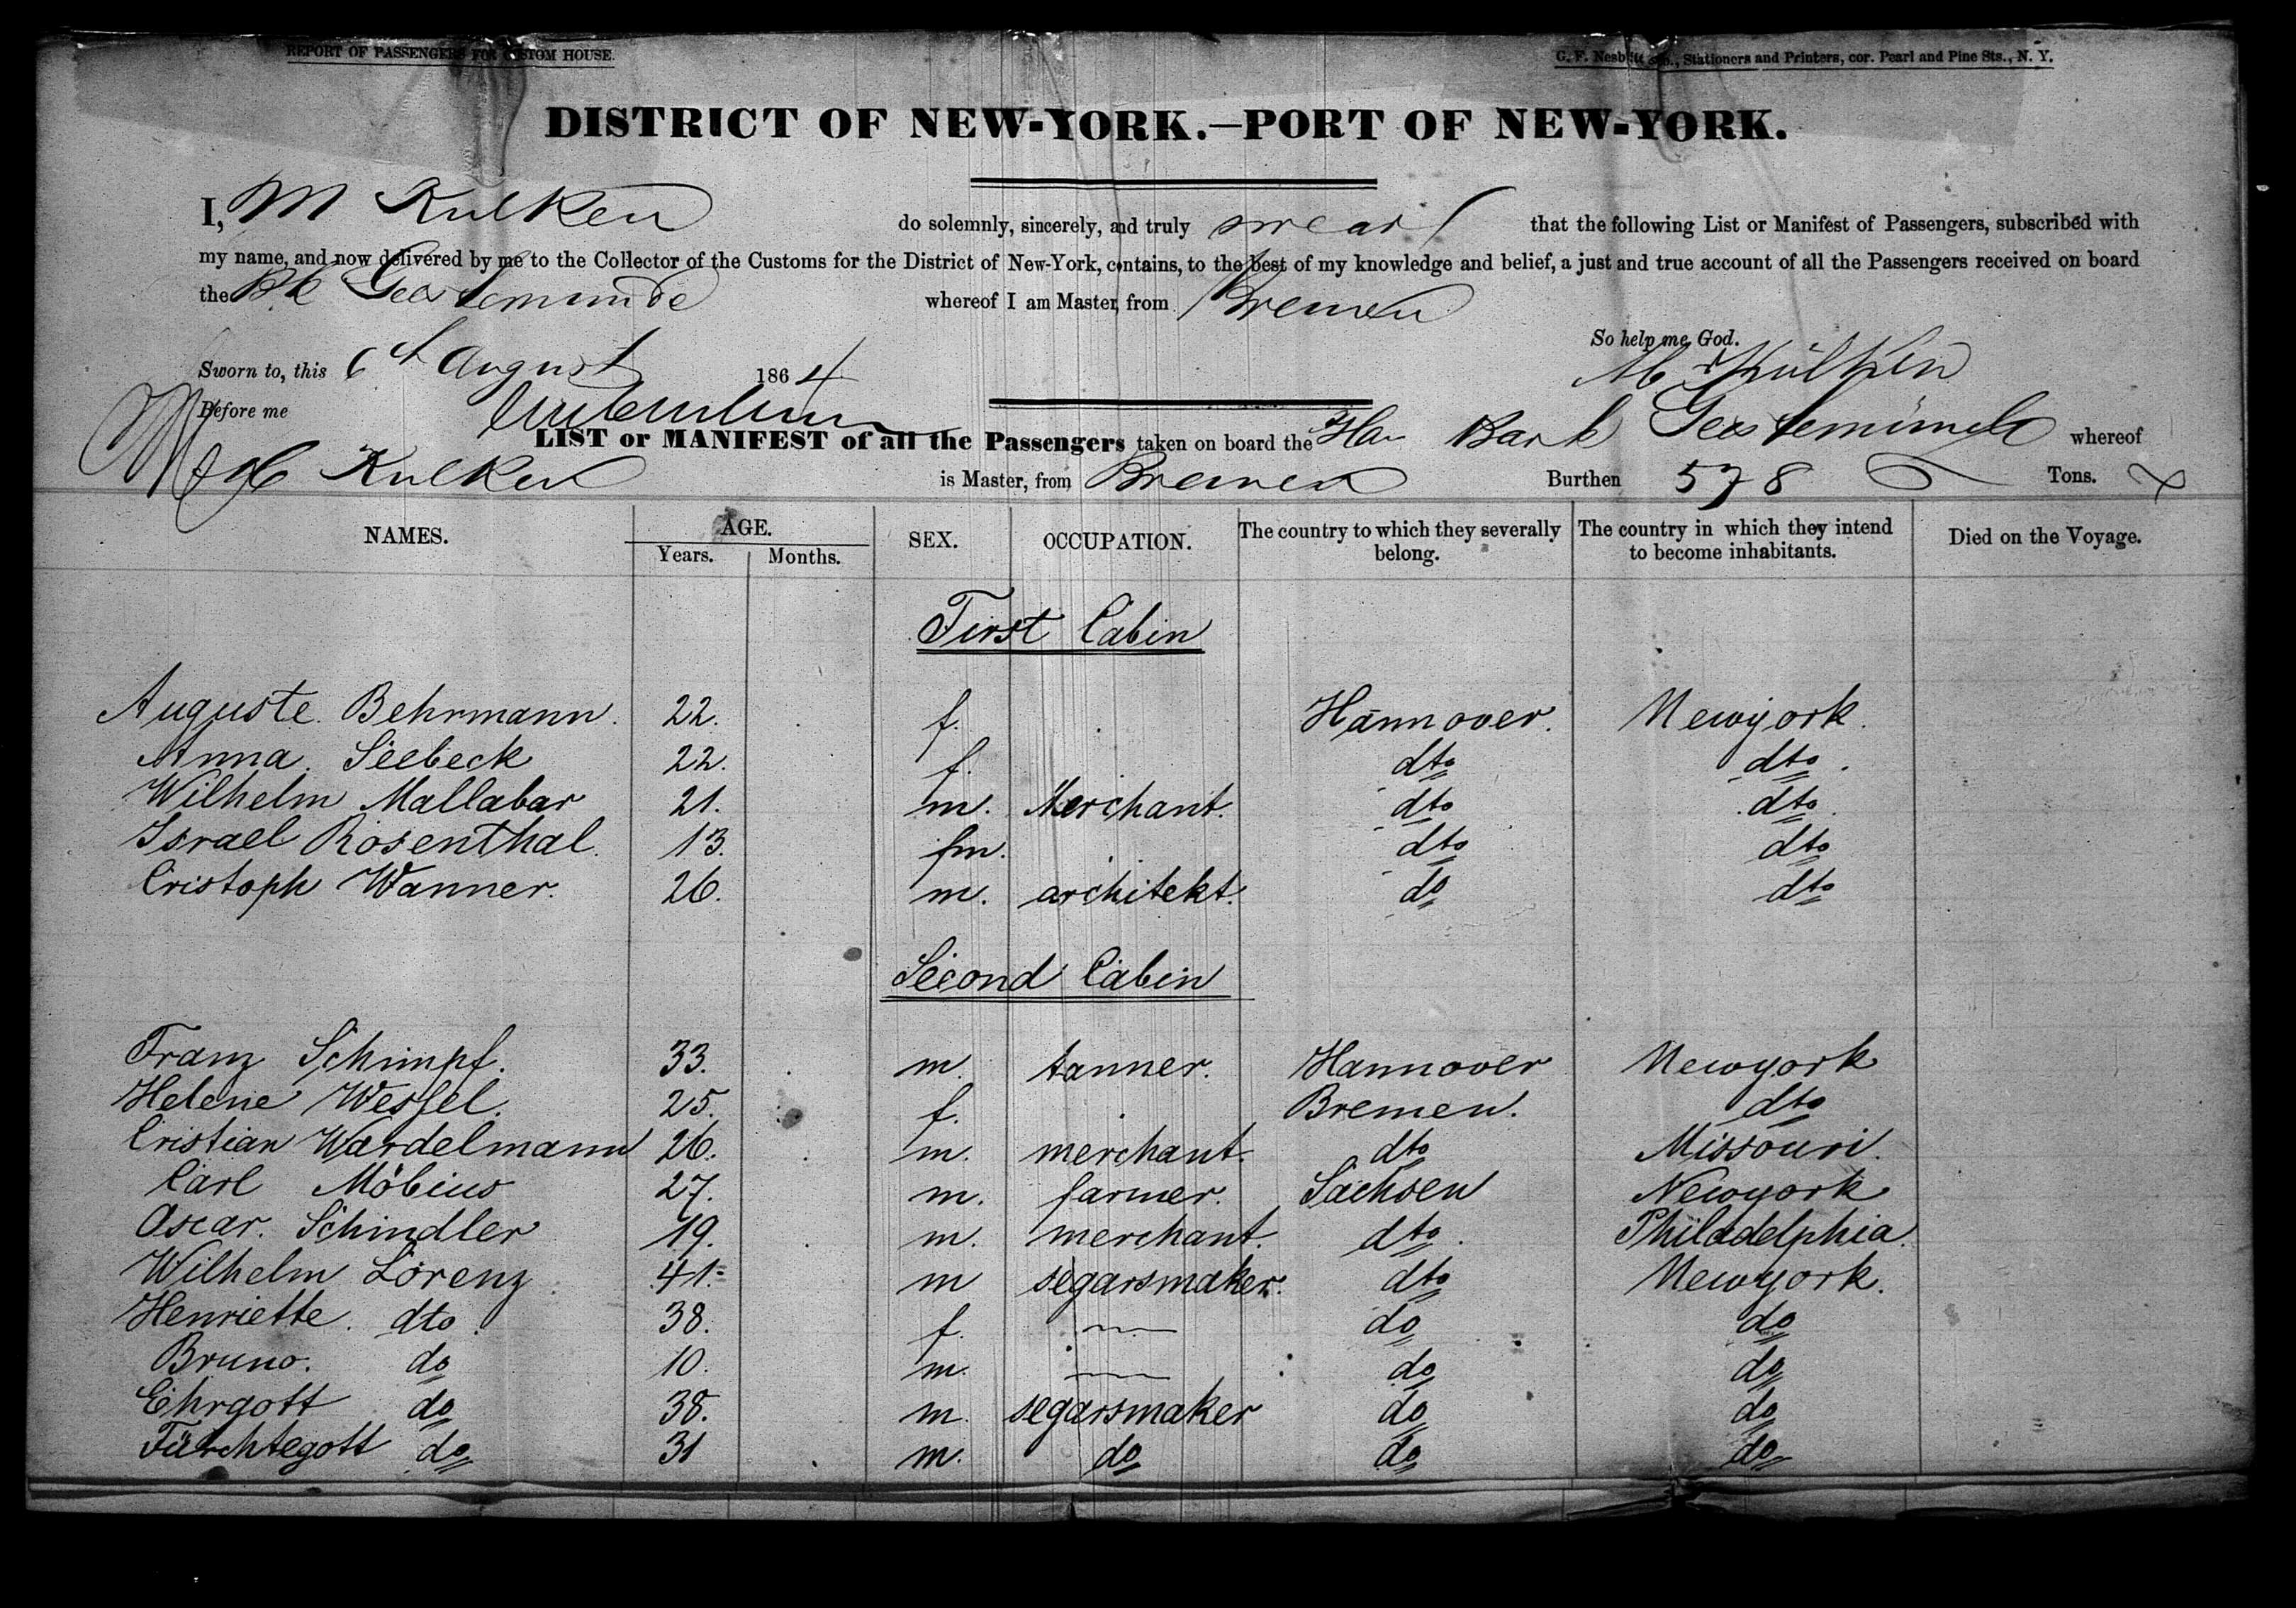 REPORT OF PASSENGERS FOR CUSTOM HOUSE.
G. F. Nesbitt & Co., Stationers and Printers, cor. Pearl and Pine Sts., N. Y.
DISTRICT OF NEW-YORK.—PORT OF NEW-YORK.
I, M Kulken do solemnly, sincerely, and truly swear that the following List or Manifest of Passengers, subscribed with
my name, and now delivered by me to the Collector of the Customs for the District of New-York, contains, to the best of my knowledge and belief, a just and true account of all the Passengers received on board
the Bk Geestemunde whereof I am Master, from Bremen
So help me God.
Sworn to, this 6th August 1864 M Külken
Before me
LIST or MANIFEST of all the Passengers taken on board the Han Bark Geestemünde whereof
Kulken is Master, from Bremen Burthen 578 Tons.
NAMES. AGE. SEX. OCCUPATION. The country to which they severally belong. The country in which they intend to become inhabitants. Died on the Voyage.
Years. Months.
First Cabin
Auguste Behrmann. 22. f. Hannover. Newyork.
Anna Seebeck 22. f. dto dto.
Wilhelm Mallabar 21. m. Merchant. dto dto.
Israel Rosenthal. 13. fm. dto dto
Cristoph Wanner. 26. m. architekt. do dto
Second Cabin
Franz Schimpf. 33. m. tanner. Hannover Newyork
Helene Wessel. 25. f. Bremen. dto
Cristian Wardelmann 26. m. merchant. dto Missouri.
Carl Möbius 27. m. farmer. Sachsen Newyork
Oscar. Schindler 19. m. merchant. dto. Philadelphia.
Wilhelm Lorenz 41. m segarsmaker. dto Newyork.
Henriette. dto. 38. f. — do do
Bruno. do 10. m. — do do
Ehrgott do 38. m. segarsmaker do do
Fürchtegott do 31 m. do do do